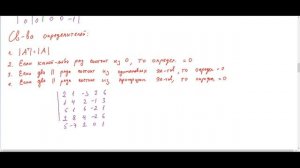 0 0 0 0 -1
Св-ва определителей:
1. |Aᵀ|=|A|
2. Если какой-либо ряд состоит из 0, то определ. = 0
3. Если два || ряда состоят из одинаковых эл-тов, то определ = 0
4. Если два || ряда состоят из пропорц. эл-тов, то определ = 0
2 1 -3 3 6
1 4 2 -1 3
6 1 6 -2 1
2 8 4 -2 6
5 -7 2 0 1